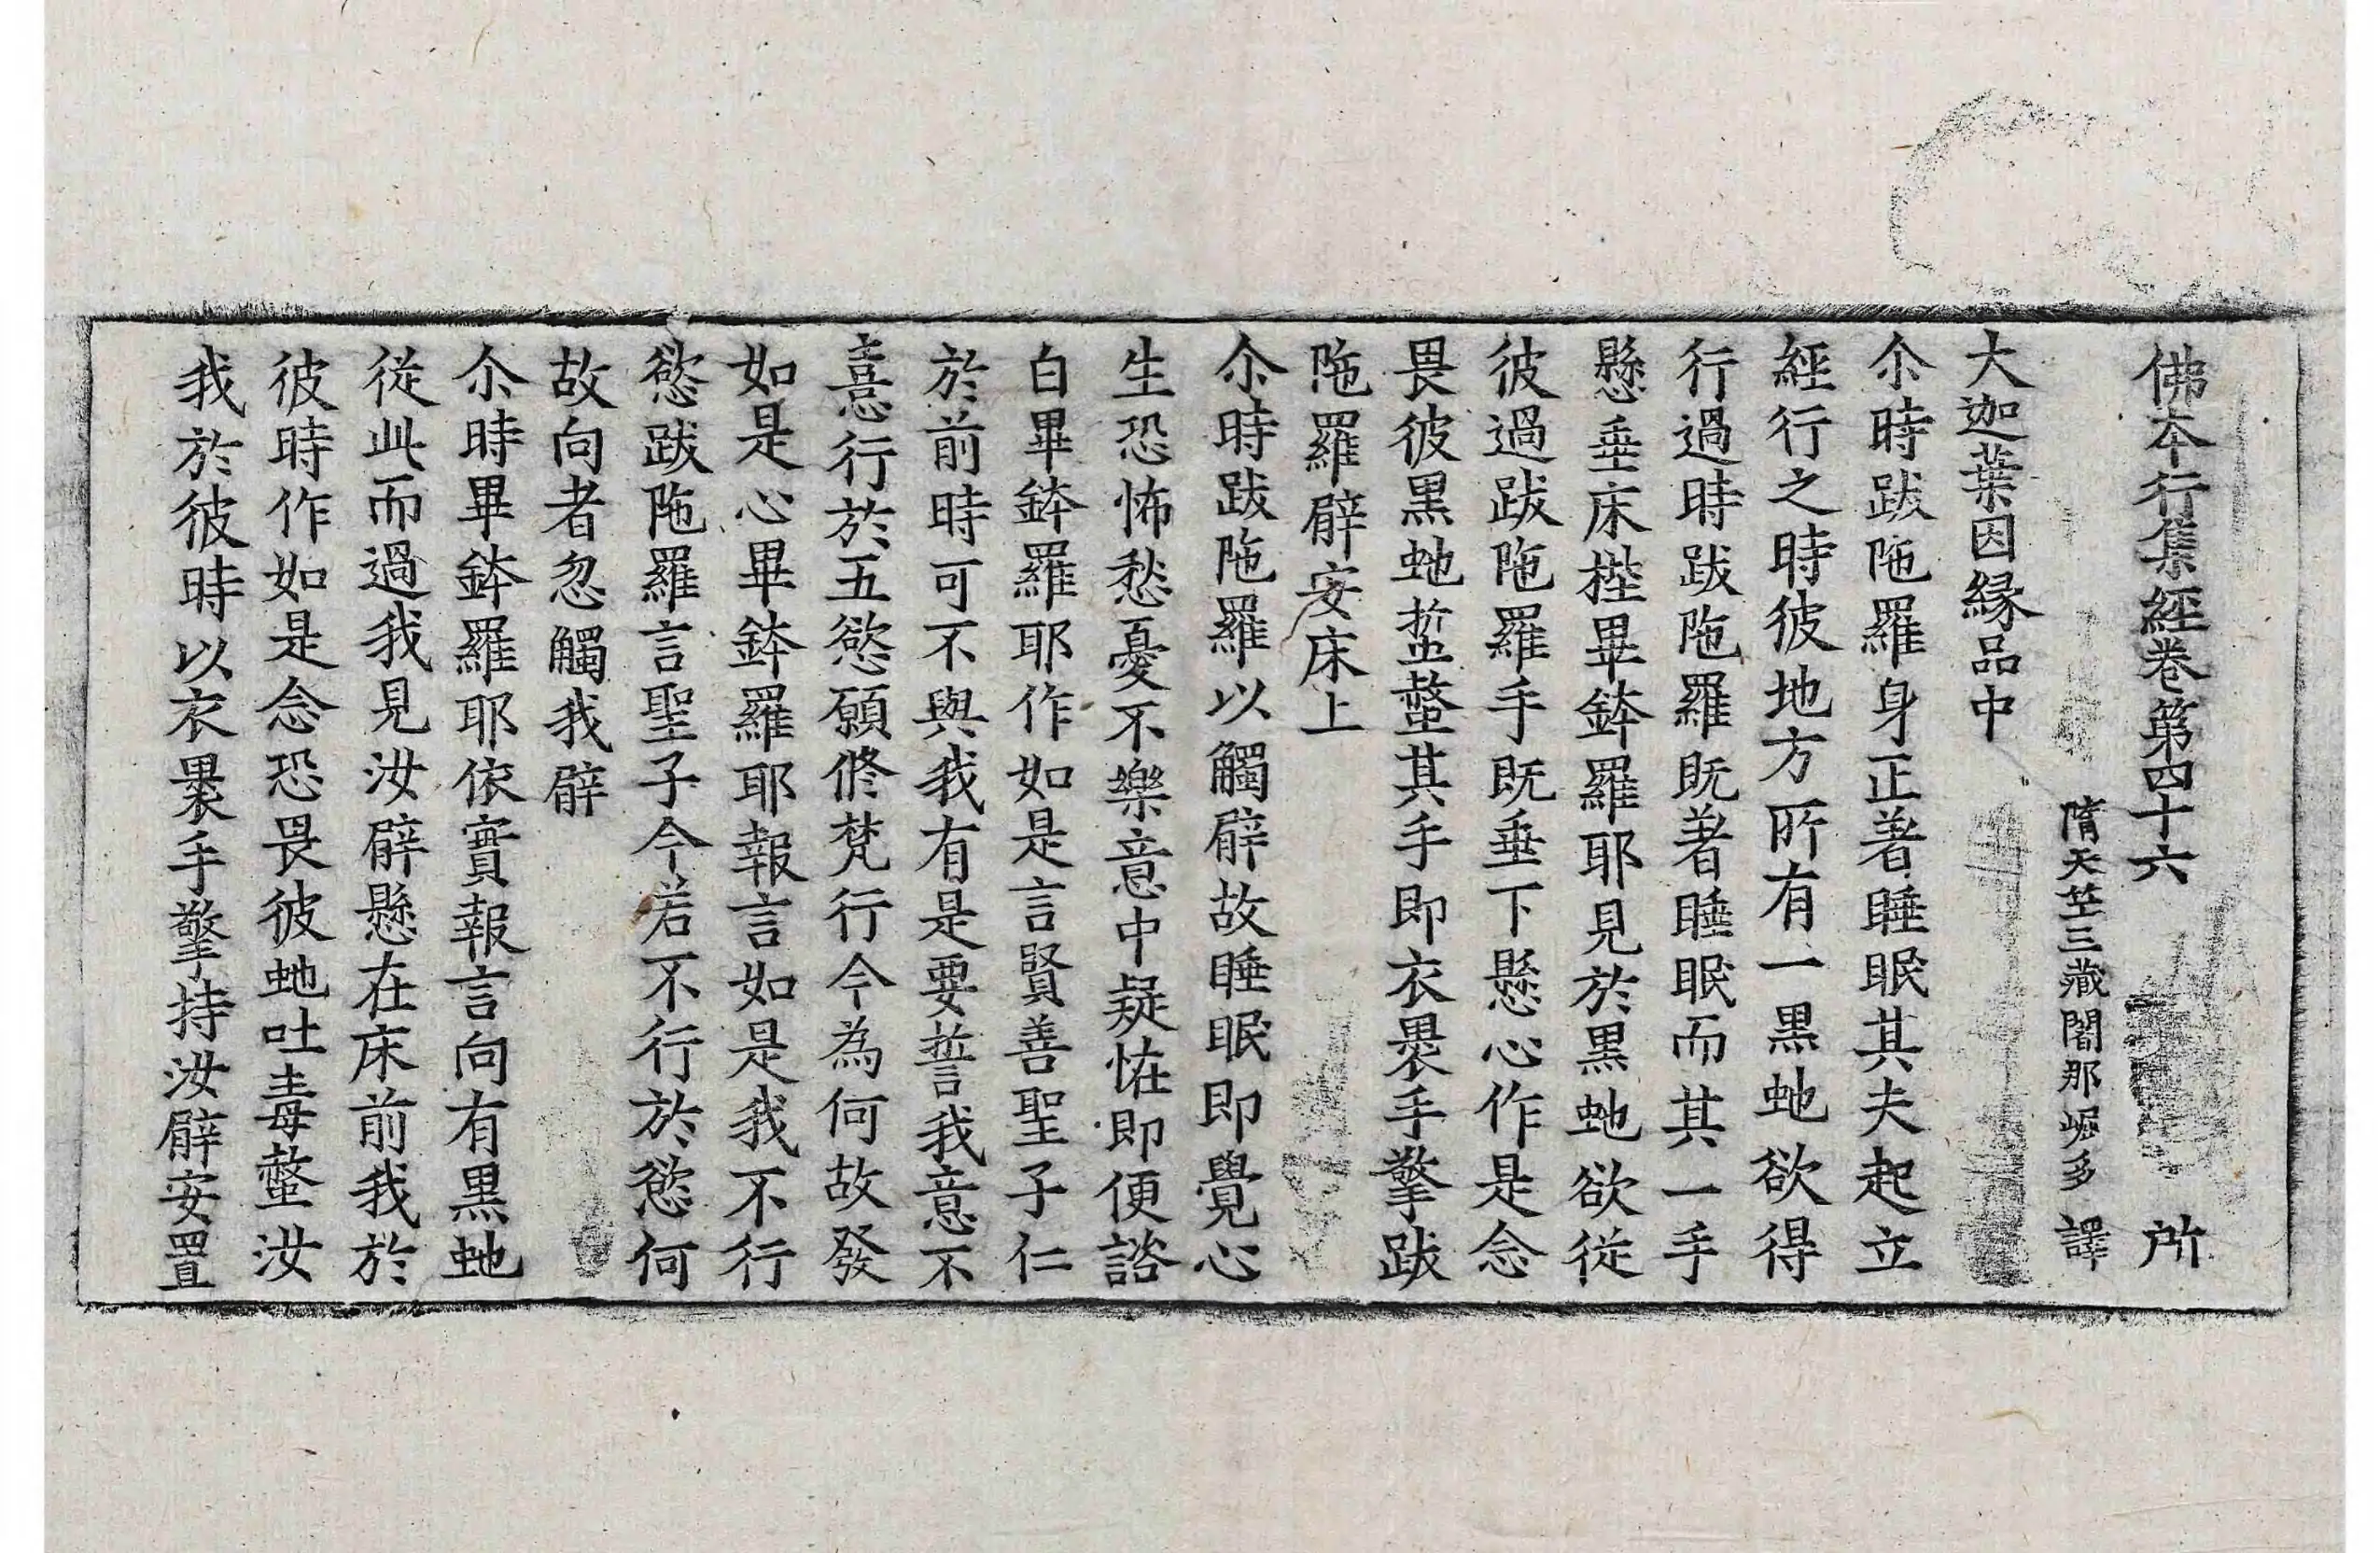 佛本行集經卷第四十六 所
隋天竺三藏闍那崛多 譯
大迦葉因緣品中
尒時跋陁羅身正著睡眠其夫起立
經行之時彼地方所有一黑虵欲得
行過時跋陁羅既著睡眠而其一手
懸垂床梐畢鉢羅耶見於黑虵欲從
彼過跋陁羅手既垂下懸心作是念
畏彼黑虵蜇螫其手即衣褁手擎跋
陁羅臂安床上
尒時跋陁羅以觸臂故睡眠即覺心
生恐怖愁憂不樂意中疑恠即便諮
白畢鉢羅耶作如是言賢善聖子仁
於前時可不與我有是要誓我意不
憙行於五慾願修梵行今為何故發
如是心畢鉢羅耶報言如是我不行
慾跋陁羅言聖子今若不行於慾何
故向者忽觸我臂
尒時畢鉢羅耶依實報言向有黑虵
從此而過我見汝臂懸在床前我於
彼時作如是念恐畏彼虵吐毒螫汝
我於彼時以衣褁手擎持汝臂安置